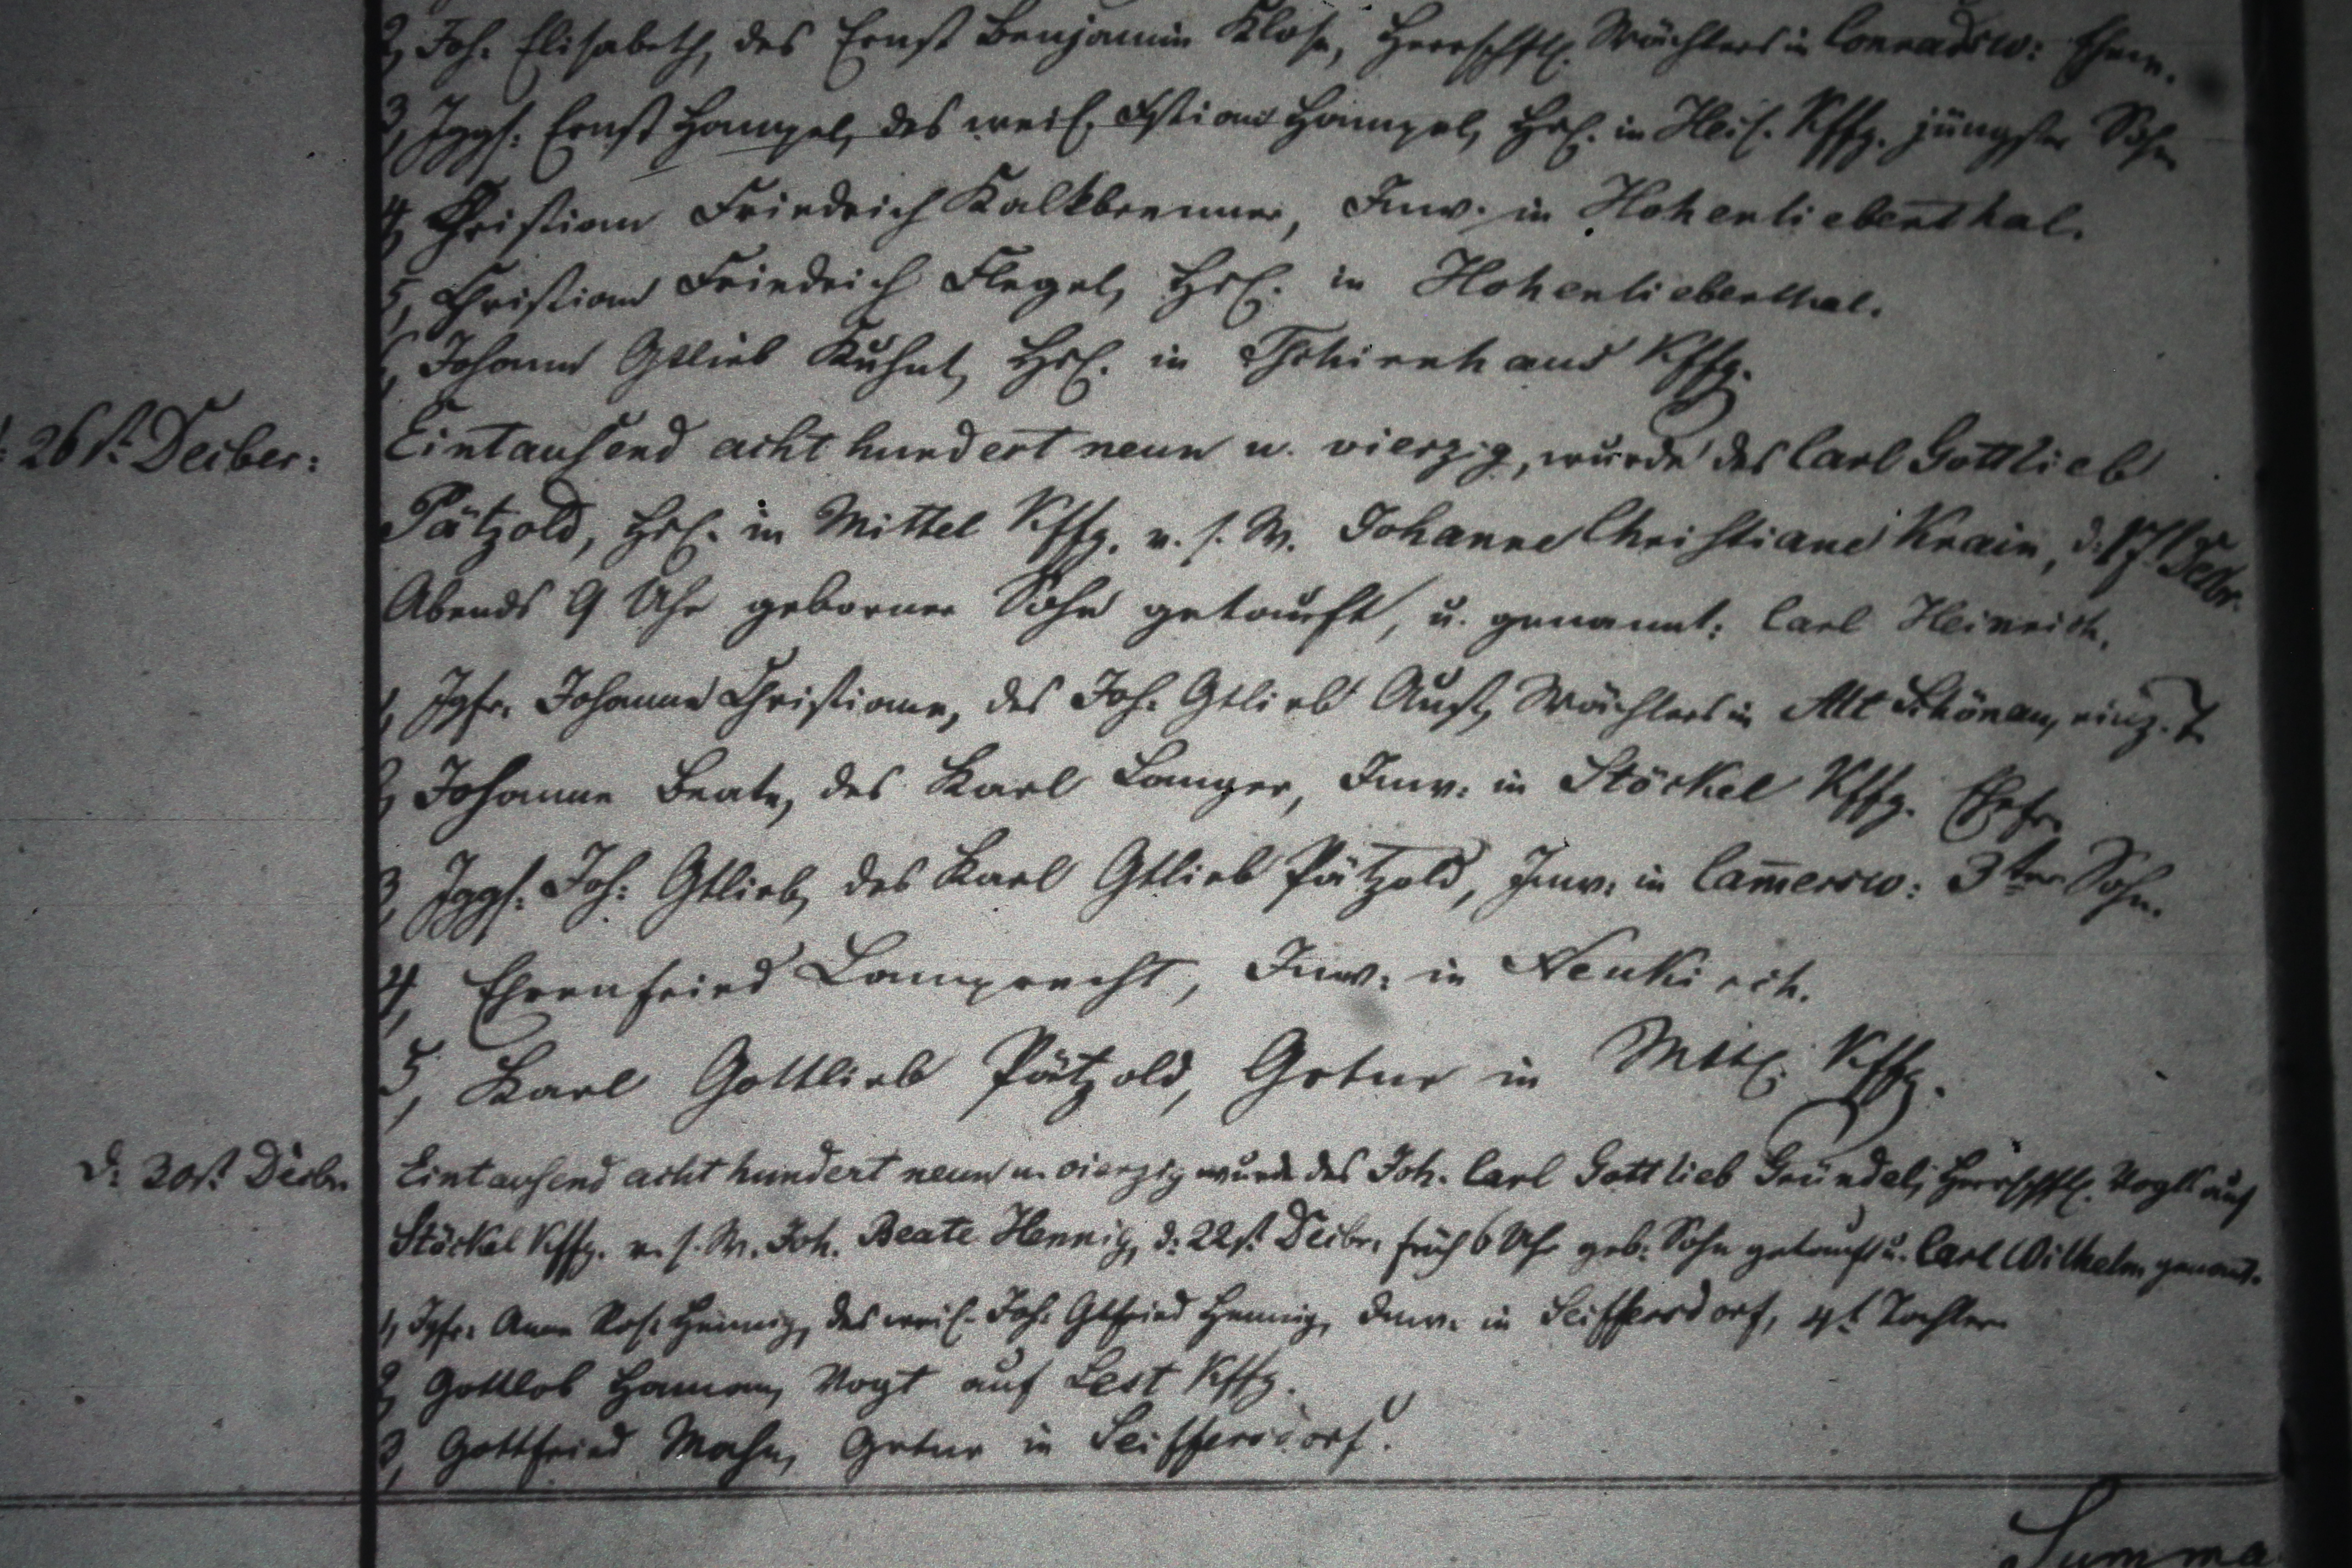 2, Joh. Elisabeth, des Ernst Benjamin Klose, Herrschftl. Wächters in Conradsw:
3, Jggs. Ernst Hampel, des weil. Christian Hampel, Hsl. in Kffg. jüngster Sohn
4, Christian Friedrich Kalkbrenner, Inw. in Hohenliebenthal.
5, Christian Friedrich Flegel, Hsl. in Hohenliebenthal.
6, Johann Gtlieb Kuhnt, Hsl. in Tschirnhaus Kffg.
d: 26st. Decber:
Eintausend acht hundert neun u. vierzig, wurde des Carl Gottlieb
Pätzold, Hsl. in Mittel Kffg. v. s. W. Johanne Christiane Krain, d. 17t Decbr.
Abends 9 Uhr geborner Sohn getauft, u. genannt: Carl Heinrich.
1, Jgfr. Johanne Christiane, des Joh. Gtlieb Aust, Wächters in Alt Schönau, einz. T.
2, Johanne Beate, des Karl Langer, Inw. in Stöckel Kffg. Ehefr.
3, Jggs. Joh: Gtlieb, des Karl Gtlieb Pätzold, Inw. in Cam̅ersw: 3ter Sohn.
4, Ehrenfried Lamprecht, Inw: in Neukirch.
5, Karl Gottlieb Pätzold, Grtnr in Mttl. Kffg.
d: 30st. Decbr.
Eintausend acht hundert neun u. vierzig wurde des Joh. Carl Gottlieb Gründel, Herrschftl. Vogts auf
Stöckel Kffg. v. s. W. Joh. Beate Hennig, d: 22st. Decbr. früh 6 Uhr geb: Sohn getauft u. Carl Wilhelm genannt.
1, Jgfr: Anne Ros. Hennig, des weil. Joh: Gtfried Hennig, Inw. in Seiffersdorf, 4t. Tochter
2, Gottlob Hamann, Vogt auf Lest Kffg.
3, Gottfried Mohn, Grtnr in Seiffersdorf.
Summa